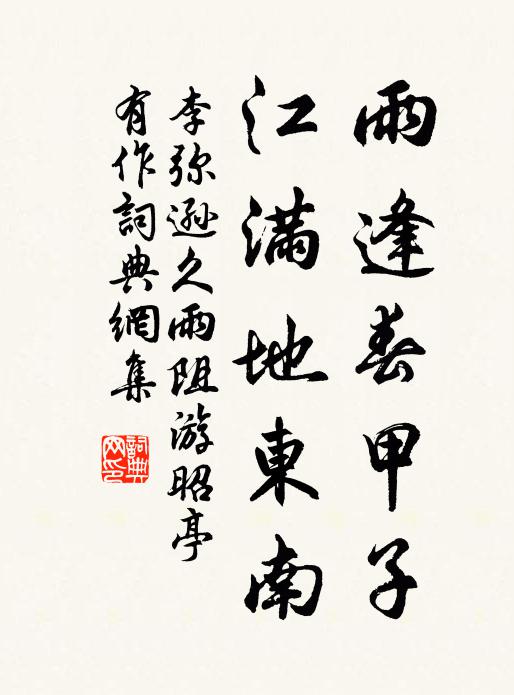 雨逢春甲子
江滿地東南
李弥遜久雨阻游昭亭
有作詞典網集
詞典網印